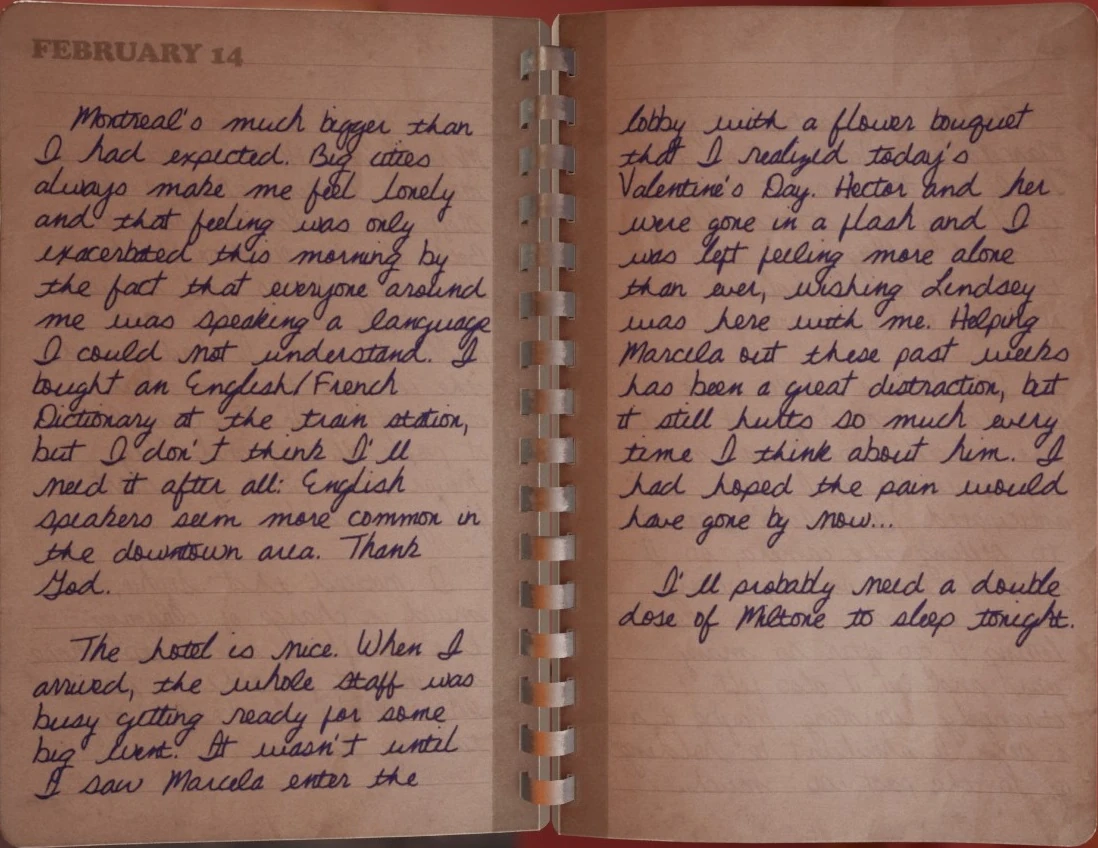 FEBRUARY 14
Montreal's much bigger than
I had expected. Big cities
always make me feel lonely
and that feeling was only
exacerbated this morning by
the fact that everyone around
me was speaking a language
I could not understand. I
bought an English/French
Dictionary at the train station,
but I don't think I'll
need it after all: English
speakers seem more common in
the downtown area. Thank
God.
The hotel is nice. When I
arrived, the whole staff was
busy getting ready for some
big event. It wasn't until
I saw Marcela enter the
lobby with a flower bouquet
that I realized today's
Valentine's Day. Hector and her
were gone in a flash and I
was left feeling more alone
than ever, wishing Lindsey
was here with me. Helping
Marcela out these past weeks
has been a great distraction, but
it still hurts so much every
time I think about him. I
had hoped the pain would
have gone by now...
I'll probably need a double
dose of Miltone to sleep tonight.